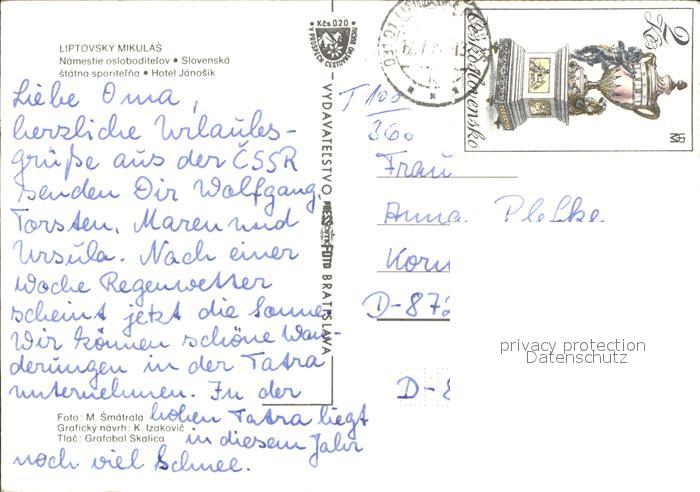 LIPTOVSKÝ MIKULÁŠ
Námestie osloboditeľov • Slovenská
štátna sporiteľňa • Hotel Jánošík
Liebe Oma,
herzliche Urlaubs-
grüße aus der ČSSR
senden Dir Wolfgang,
Torsten, Maren und
Ursula. Nach einer
Woche Regenwetter
scheint jetzt die Sonne.
Wir können schöne Wan-
derungen in der Tatra
unternehmen. In der
hohen Tatra liegt
in diesem Jahr
noch viel Schnee.
Foto: M. Šmátrala
Grafický návrh: K. Izakovič
Tlač: Grafobal Skalica
Kčs 0,20
VYDAVATEĽSTVO PRESSFOTO BRATISLAVA
2 Kčs
Československo
T 100
360
Frau
Anna
Korn
D-872
D-8
privacy protection
Datenschutz